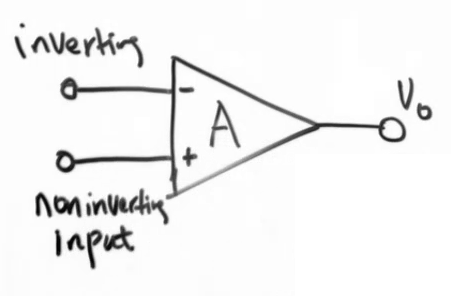 inverting
-
A
+
Vo
noninverting
input